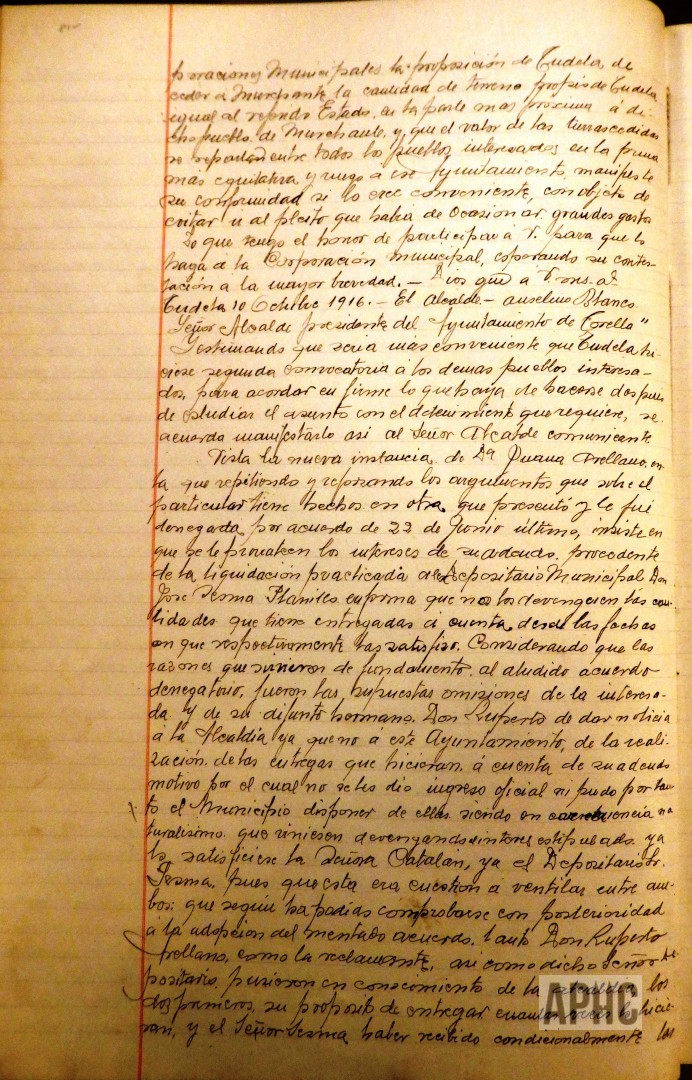 poraciones Municipales la proposición de Tudela de
ceder a Murchante la cantidad de terreno propio de Tudela
igual al Estado, en la parte mas proxima á di-
cho pueblo de Murchante, y que el valor de las tierras cedidas
se repartan entre todos los pueblos interesados en la forma
mas equitativa, y ruego a ese Ayuntamiento, manifieste
su conformidad si lo cree conveniente, con objeto de
evitar ir al pleito que habia de ocasionar grandes gastos
Lo que tengo el honor de participar á V. para que lo
haga á la Corporación municipal, esperando su contes-
tación a la mayor brevedad. — Dios gue a V. ms. as.
Tudela 10 Octubre 1916. — El Alcalde — Anselmo Blanco
Señor Alcalde presidente del Ayuntamiento de Corella"
Yestimando que seria mas conveniente que Tudela hi-
ciese segunda convocatoria á los demas pueblos interesa-
dos, para acordar en firme lo que haya de hacerse despues
de estudiar el asunto con el detenimiento que requiere, se
acuerda manifestarlo asi al Señor Alcalde comunicante
Vista la nueva instancia de Dª Juana Arellano, en
la que repitiendo y reforzando los argumentos que sobre el
particular tiene hechos en otra que presentó y le fué
denegada por acuerdo de 22 de Junio último, insiste en
que se le prorrateen los intereses de su adeudo, procedente
de la liquidación practicada al Depositario Municipal Don
José Sesma Planillo en forma que no los devenguen las can-
tidades que tiene entregadas á cuenta desde las fechas
en que respectivamente las satisfizo. Considerando que las
razones que sirvieron de fundamento al aludido acuerdo
denegatorio, fueron las supuestas omisiones de la interesa-
da y de su difunto hermano Don Ruperto de dar noticia
á la Alcaldía ya que no á este Ayuntamiento, de la reali-
zación de las entregas que hicieran á cuenta de su adeudo
motivo por el cual no se les dio ingreso oficial ni pudo por tan-
to el Municipio disponer de ellas siendo en consecuencia na
turalísimo que viniesen devengando interes estipulado ya
lo satisficiese la Señora Catalan, ya el Depositario Sr.
Sesma, pues que esta era cuestion á ventilar entre am-
bos; que segun ha podido comprobarse con posterioridad
á la adopcion del mentado acuerdo, tanto Don Ruperto
Arellano, como la reclamante, asi como dicho Señor De-
positario, pusieron en conocimiento de la Alcaldia los
dos primeros, su proposito de entregar cuantas veces lo hicie-
ran, y el Señor Sesma haber recibido condicionalmente las
APHC